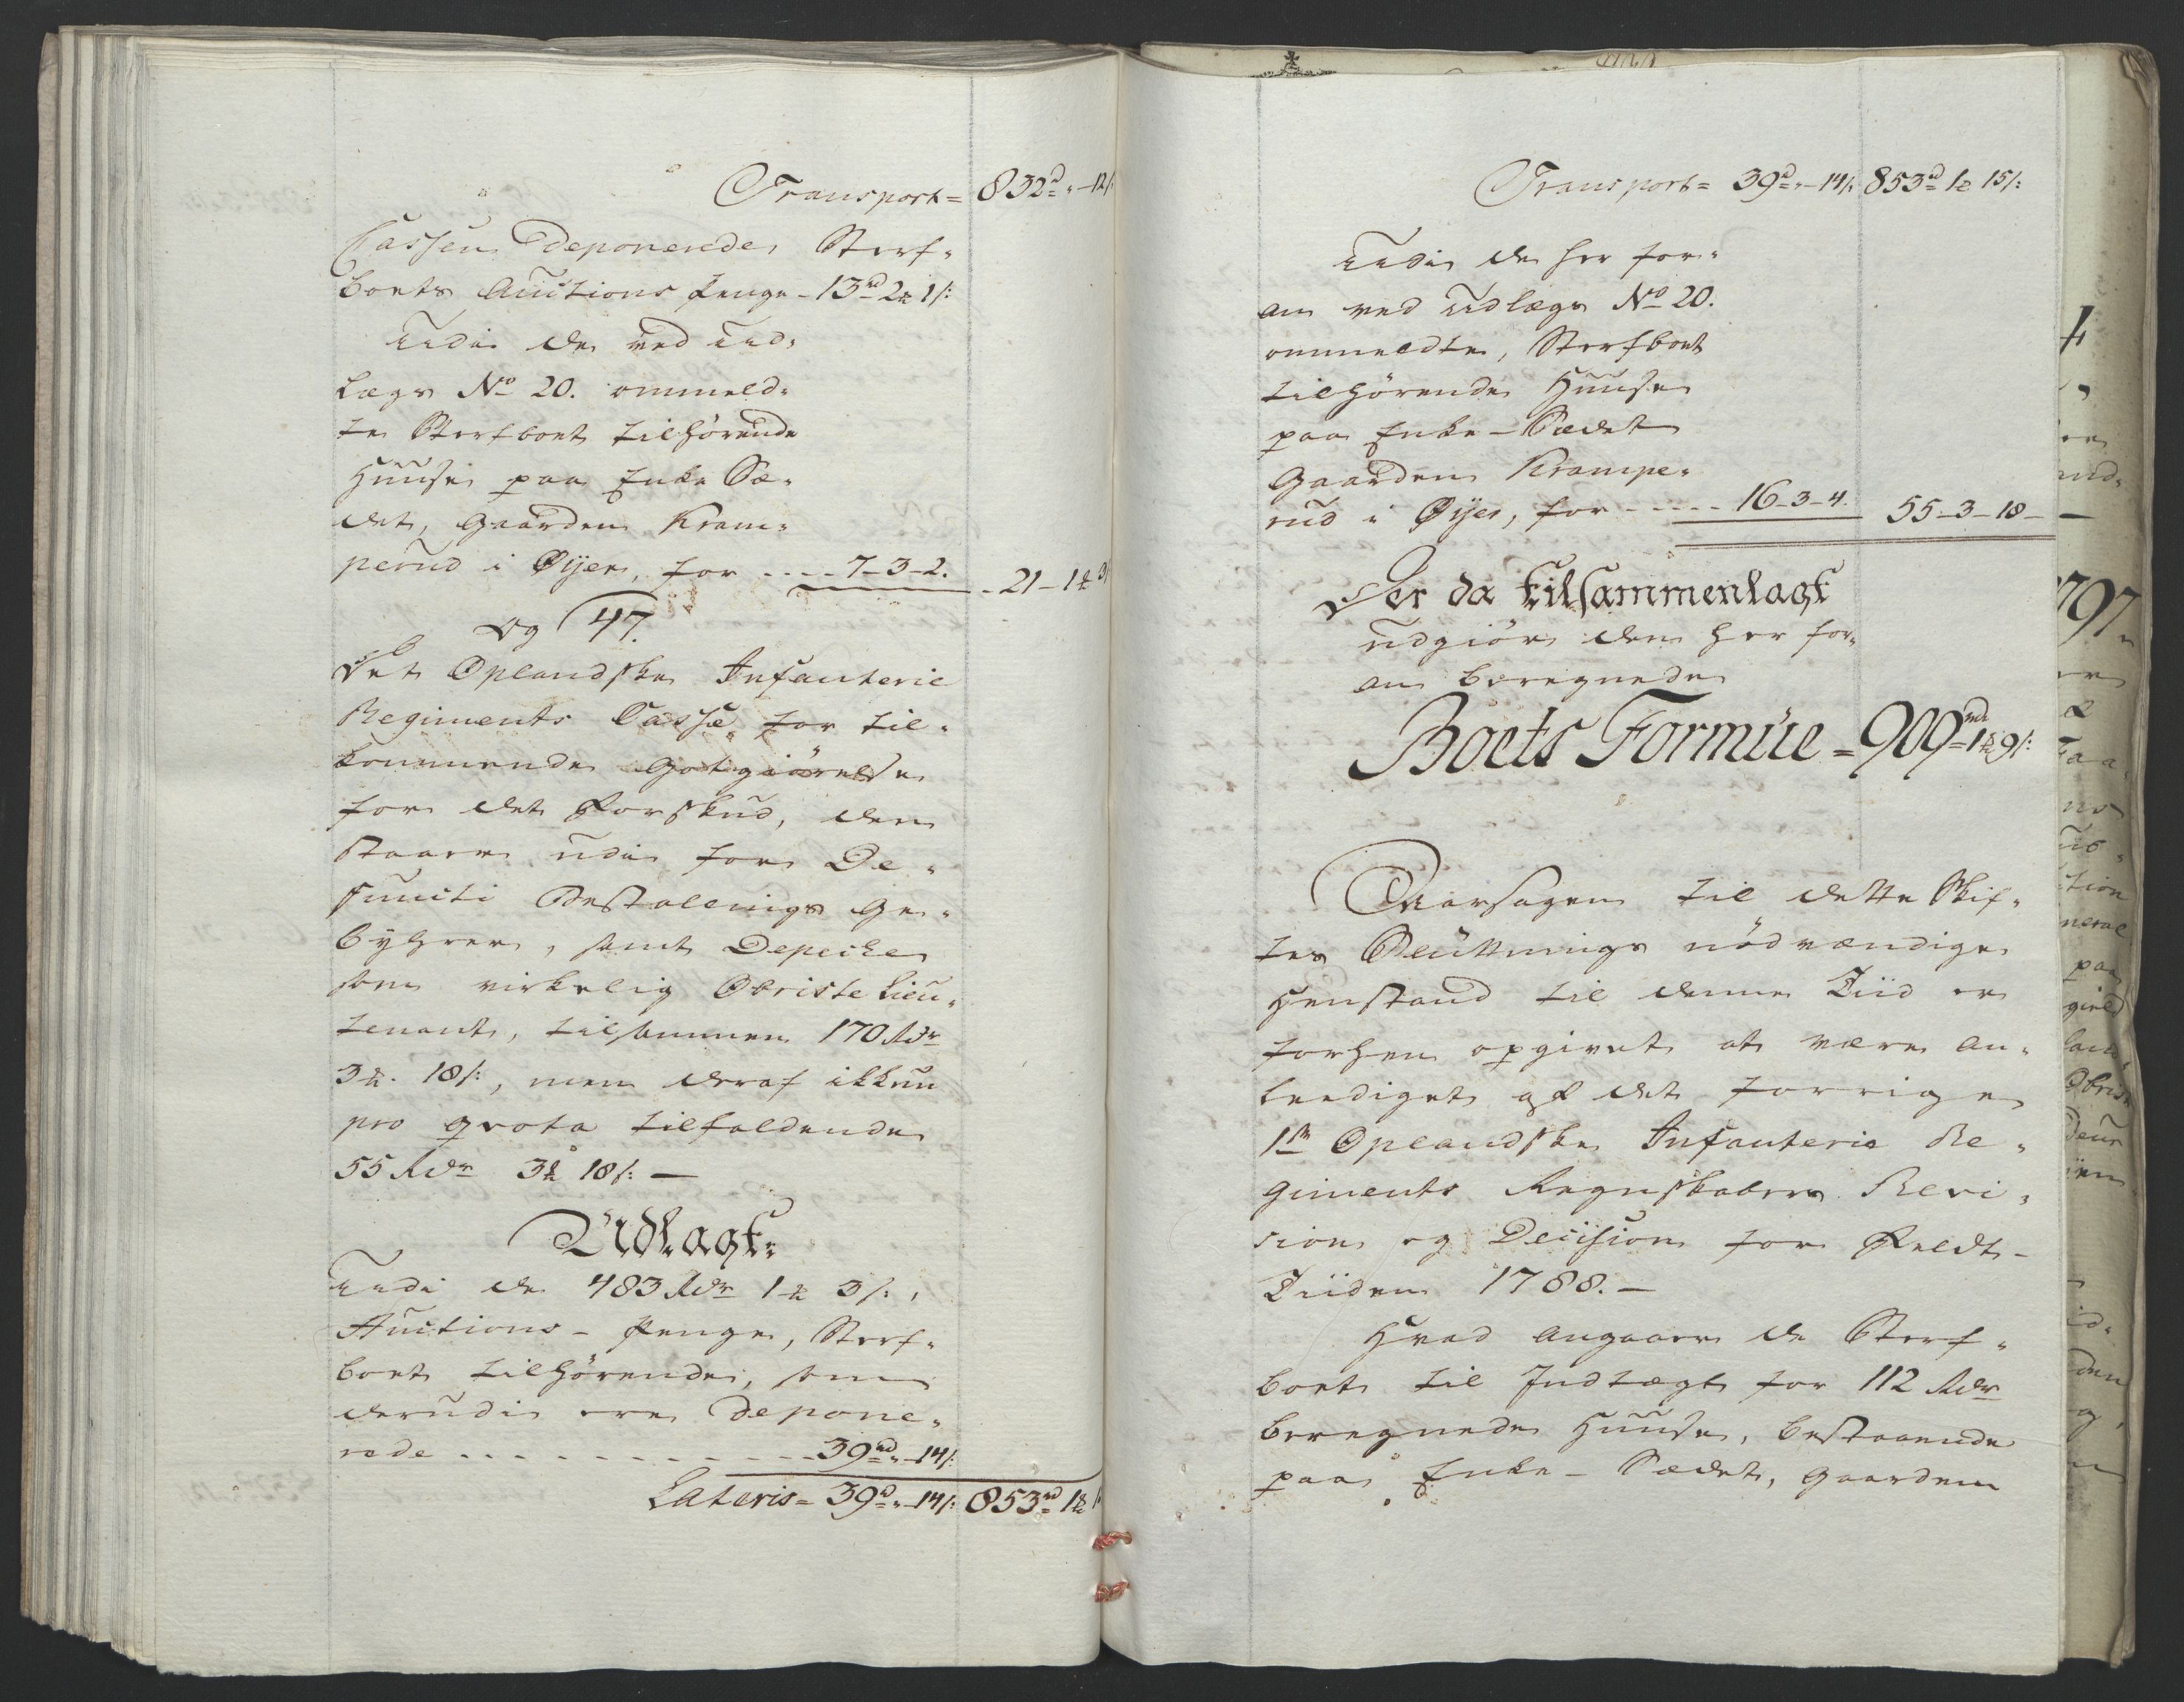 Transport = 832rd „ - 12/:
Cassen deponerede Sterf-
boets Auctions Penge - 13rd 2 # 1/:
Udi de ved Ud-
lægs No 20. ommeld-
te Sterfboet tilhørende
Huuse paa Enke Sæ-
det, Gaarden Kram-
perud i Øyer, for .... 7-3-2. - 21-1 # 3/
og 47.
Det Oplandske Infanterie
Regiments Casse for til-
kommende Godtgiørelse
for det Forskud, den
staaer udi for De-
functi Bestallings Ge-
byhrer, samt Depeche
som virkelig Obriste Lieu-
tenant, tilsammen 170 Rdr
3 #. 18/:, men deraf ikkun
pro qvota tilfaldende
55 Rdr 3 # 18/: —
Udlagt.
Udi de 483 Rdr 1 # 3/:,
Auctions - Penge, Sterf-
boet tilhørende, som
derudi ere depone-
rede . . . . . . . . . . 39rd „ - 14/:
Lateris = 39rd „ - 14/: 853rd 1 #
Transport = 39rd „ - 14/: 853rd 1 # 15/:
Udi de her for-
an ved Udlægs No 20.
ommeldte, Sterfboet
tilhørende Huuse
paa Enke-Sædet
Gaarden Krampe-
rud i Øyer, for ----- 16-3-4. 55-3-18-
Der da tilsammenlagt
udgiør den her for-
an beregnede
Boets Formüe = 909rd 1 # 9/:
Aarsagen til dette Skif-
tes Sluttnings nødvændige
Henstand til denne Tiid er
forhen opgivet at være an-
lediget af det forrige
1te Oplandske Infanterie Re-
giments Regnskabers Revi-
sion og Decision for Feldt-
Tiiden 1788. —
Hvad angaaer de Sterf-
boet til Indtægt for 112 Rdr
beregnede Huuse, bestaaende
paa Enke-Sædet, Gaarden